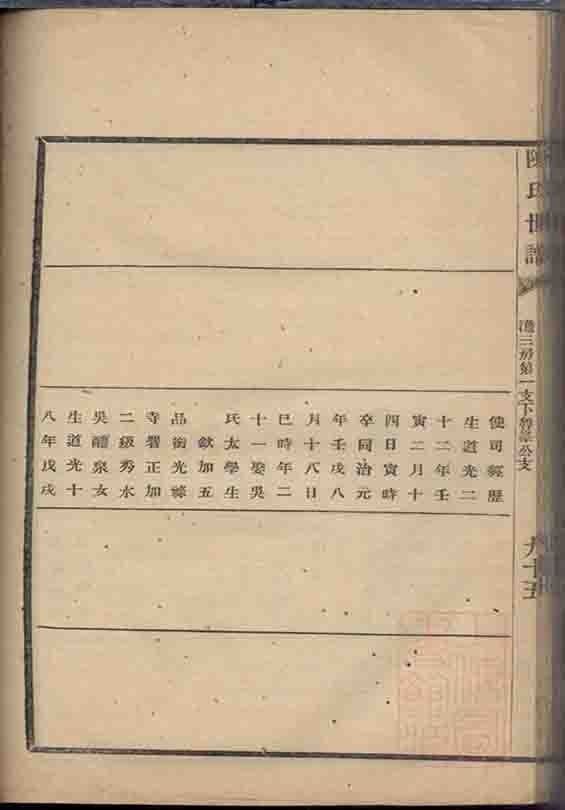 陳氏世譜
三房第一支下
公支
九十五
使司經歷
生道光二
十二年壬
寅二月十
四日寅時
卒同治元
年壬戌八
月十八日
巳時年二
十一娶吳
氏太學生
欽加五
品銜光祿
寺署正加
二級秀水
吳醴泉女
生道光十
八年戊戌